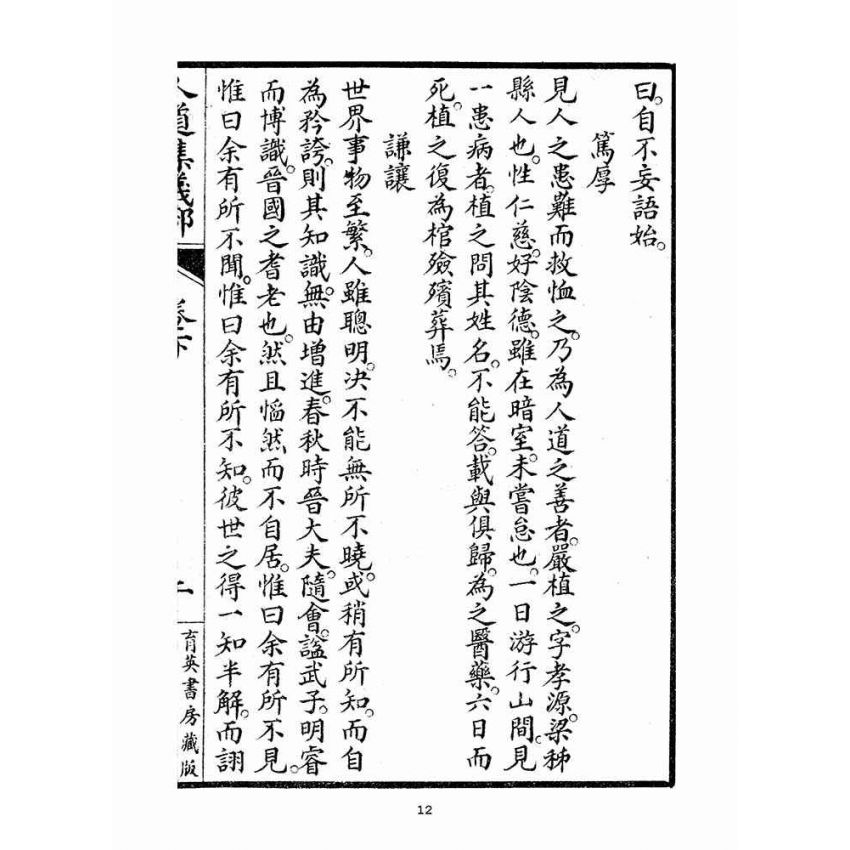 曰。自不妄語始。
篤厚
見人之患難而救恤之。乃為人道之善者。嚴植之。字孝源。梁秭
縣人也。性仁慈。好陰德。雖在暗室。未嘗怠也。一日游行山間。見
一患病者。植之問其姓名。不能答。載與俱歸。為之醫藥。六日而
死。植之復為棺殮殯葬焉。
謙讓
世界事物至繁。人雖聰明。決不能無所不曉。或稍有所知。而自
為矜誇。則其知識。無由增進。春秋時晉大夫。隨會。諡武子。明睿
而博識。晉國之耆老也。然且惱然而不自居。惟曰余有所不見。
惟曰余有所不聞。惟曰余有所不知。彼世之得一知半解。而詡
人道集義部
卷下
育英書房藏版
12